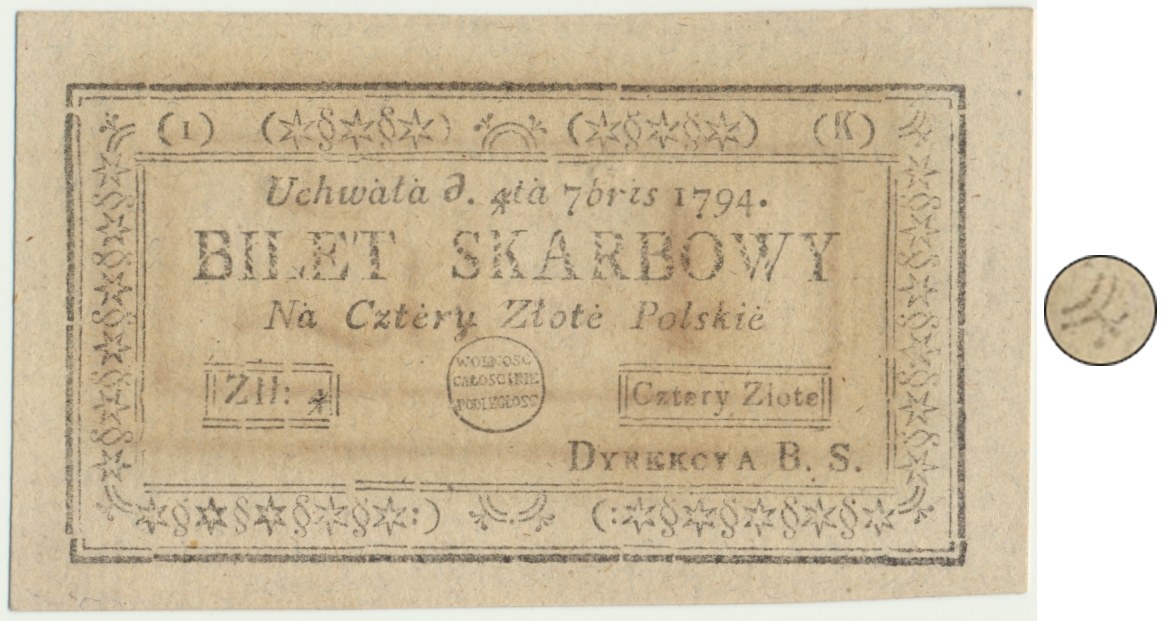 (1) (K)
Uchwàłà d. 4tà 7bris 1794.
BILET SKARBOWY
Nà Cztèry Złotè Polskiè
Złł: 4
WOLNOSC
CAŁOSC I NIE
PODLEGŁOSC
Cztery Złote
DYREKCYA B. S.